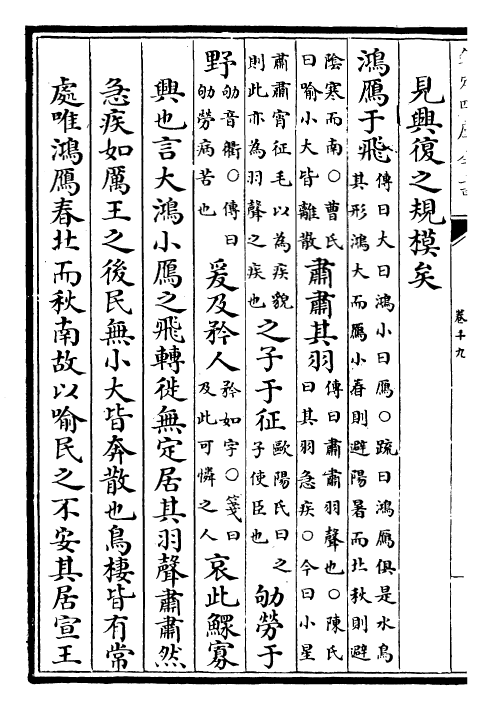 卷十九
見興復之規模矣
鴻鴈于飛傳曰大曰鴻小曰鴈○疏曰鴻鴈俱是水鳥其形鴻大而鴈小春則避陽暑而北秋則避
陰寒而南○曹氏曰喻小大皆離散肅肅其羽傳曰肅肅羽聲也○陳氏曰其羽急疾○今曰小星
肅肅宵征毛以為疾貌則此亦為羽聲之疾也之子于征歐陽氏曰之子使臣也劬勞于
野劬音衢○傳曰劬勞病苦也爰及矜人矜如字○箋曰及此可憐之人哀此鰥寡
興也言大鴻小鴈之飛轉徙無定居其羽聲肅肅然
急疾如厲王之後民無小大皆奔散也鳥棲皆有常
處唯鴻鴈春北而秋南故以喻民之不安其居宣王